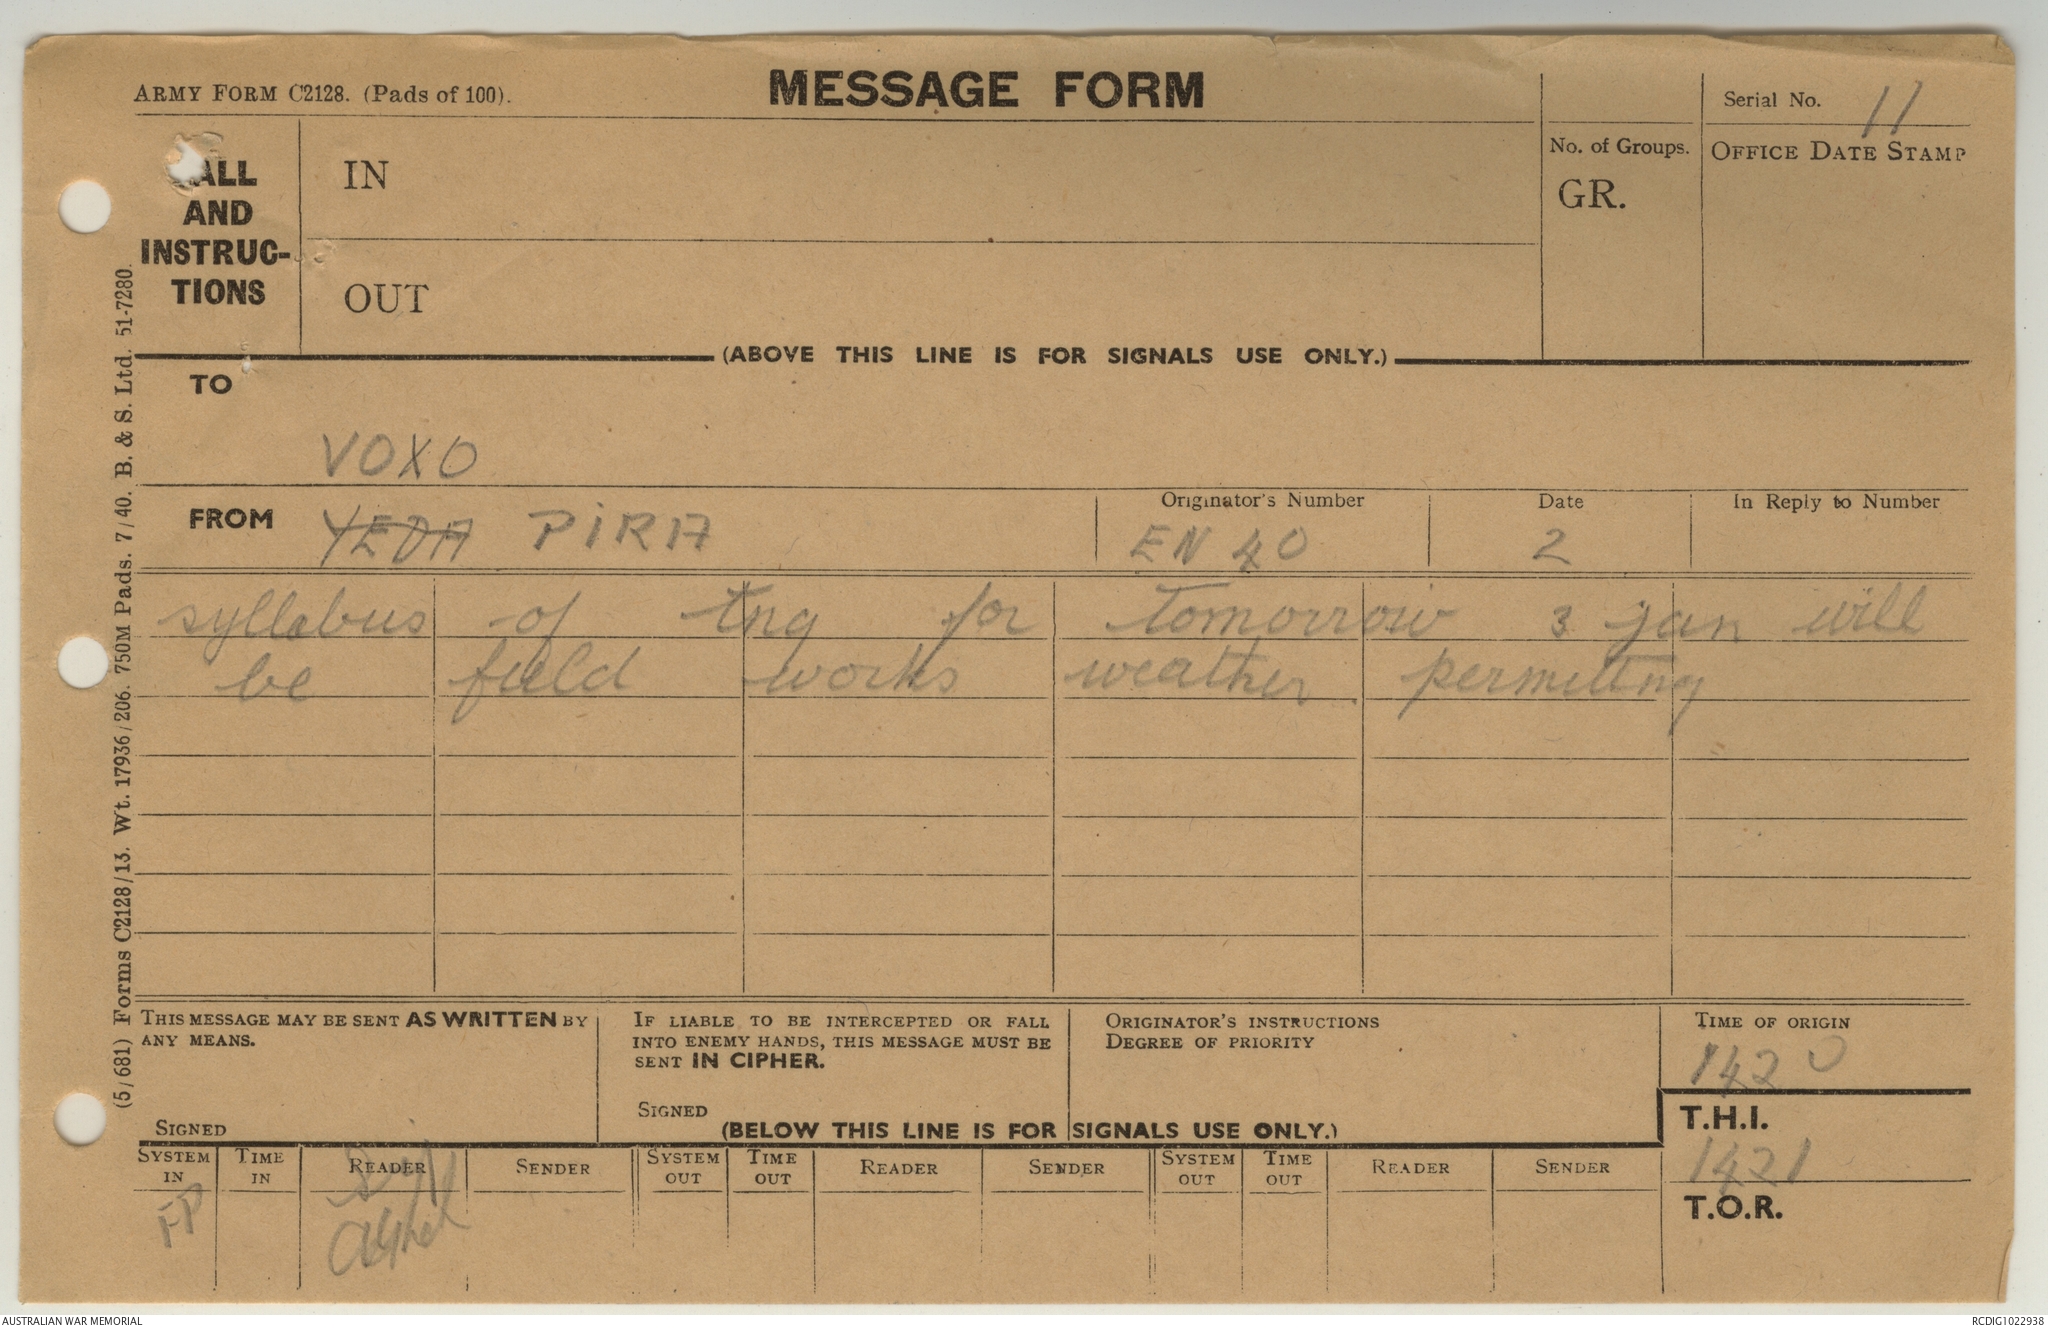 ARMY FORM C2128. (Pads of 100).
MESSAGE FORM
Serial No. 11
ALL
AND
INSTRUC-
TIONS
IN
OUT
No. of Groups.
GR.
OFFICE DATE STAMP
(ABOVE THIS LINE IS FOR SIGNALS USE ONLY.)
TO
VOXO
FROM
YEDA PIRA
Originator's Number
EN 40
Date
2
In Reply to Number
syllabus of tng for tomorrow 3 jan will
be field works weather permitting
THIS MESSAGE MAY BE SENT AS WRITTEN BY
ANY MEANS.
SIGNED
IF LIABLE TO BE INTERCEPTED OR FALL
INTO ENEMY HANDS, THIS MESSAGE MUST BE
SENT IN CIPHER.
SIGNED
ORIGINATOR'S INSTRUCTIONS
DEGREE OF PRIORITY
TIME OF ORIGIN
1420
T.H.I.
1421
T.O.R.
(BELOW THIS LINE IS FOR SIGNALS USE ONLY.)
SYSTEM IN
TIME IN
READER
SENDER
SYSTEM OUT
TIME OUT
READER
SENDER
SYSTEM OUT
TIME OUT
READER
SENDER
FP
(5/681) Forms C2128/13. Wt. 17936/206. 750M Pads. 7/40. B. & S. Ltd. 51-7280.
AUSTRALIAN WAR MEMORIAL
RCDIG1022938